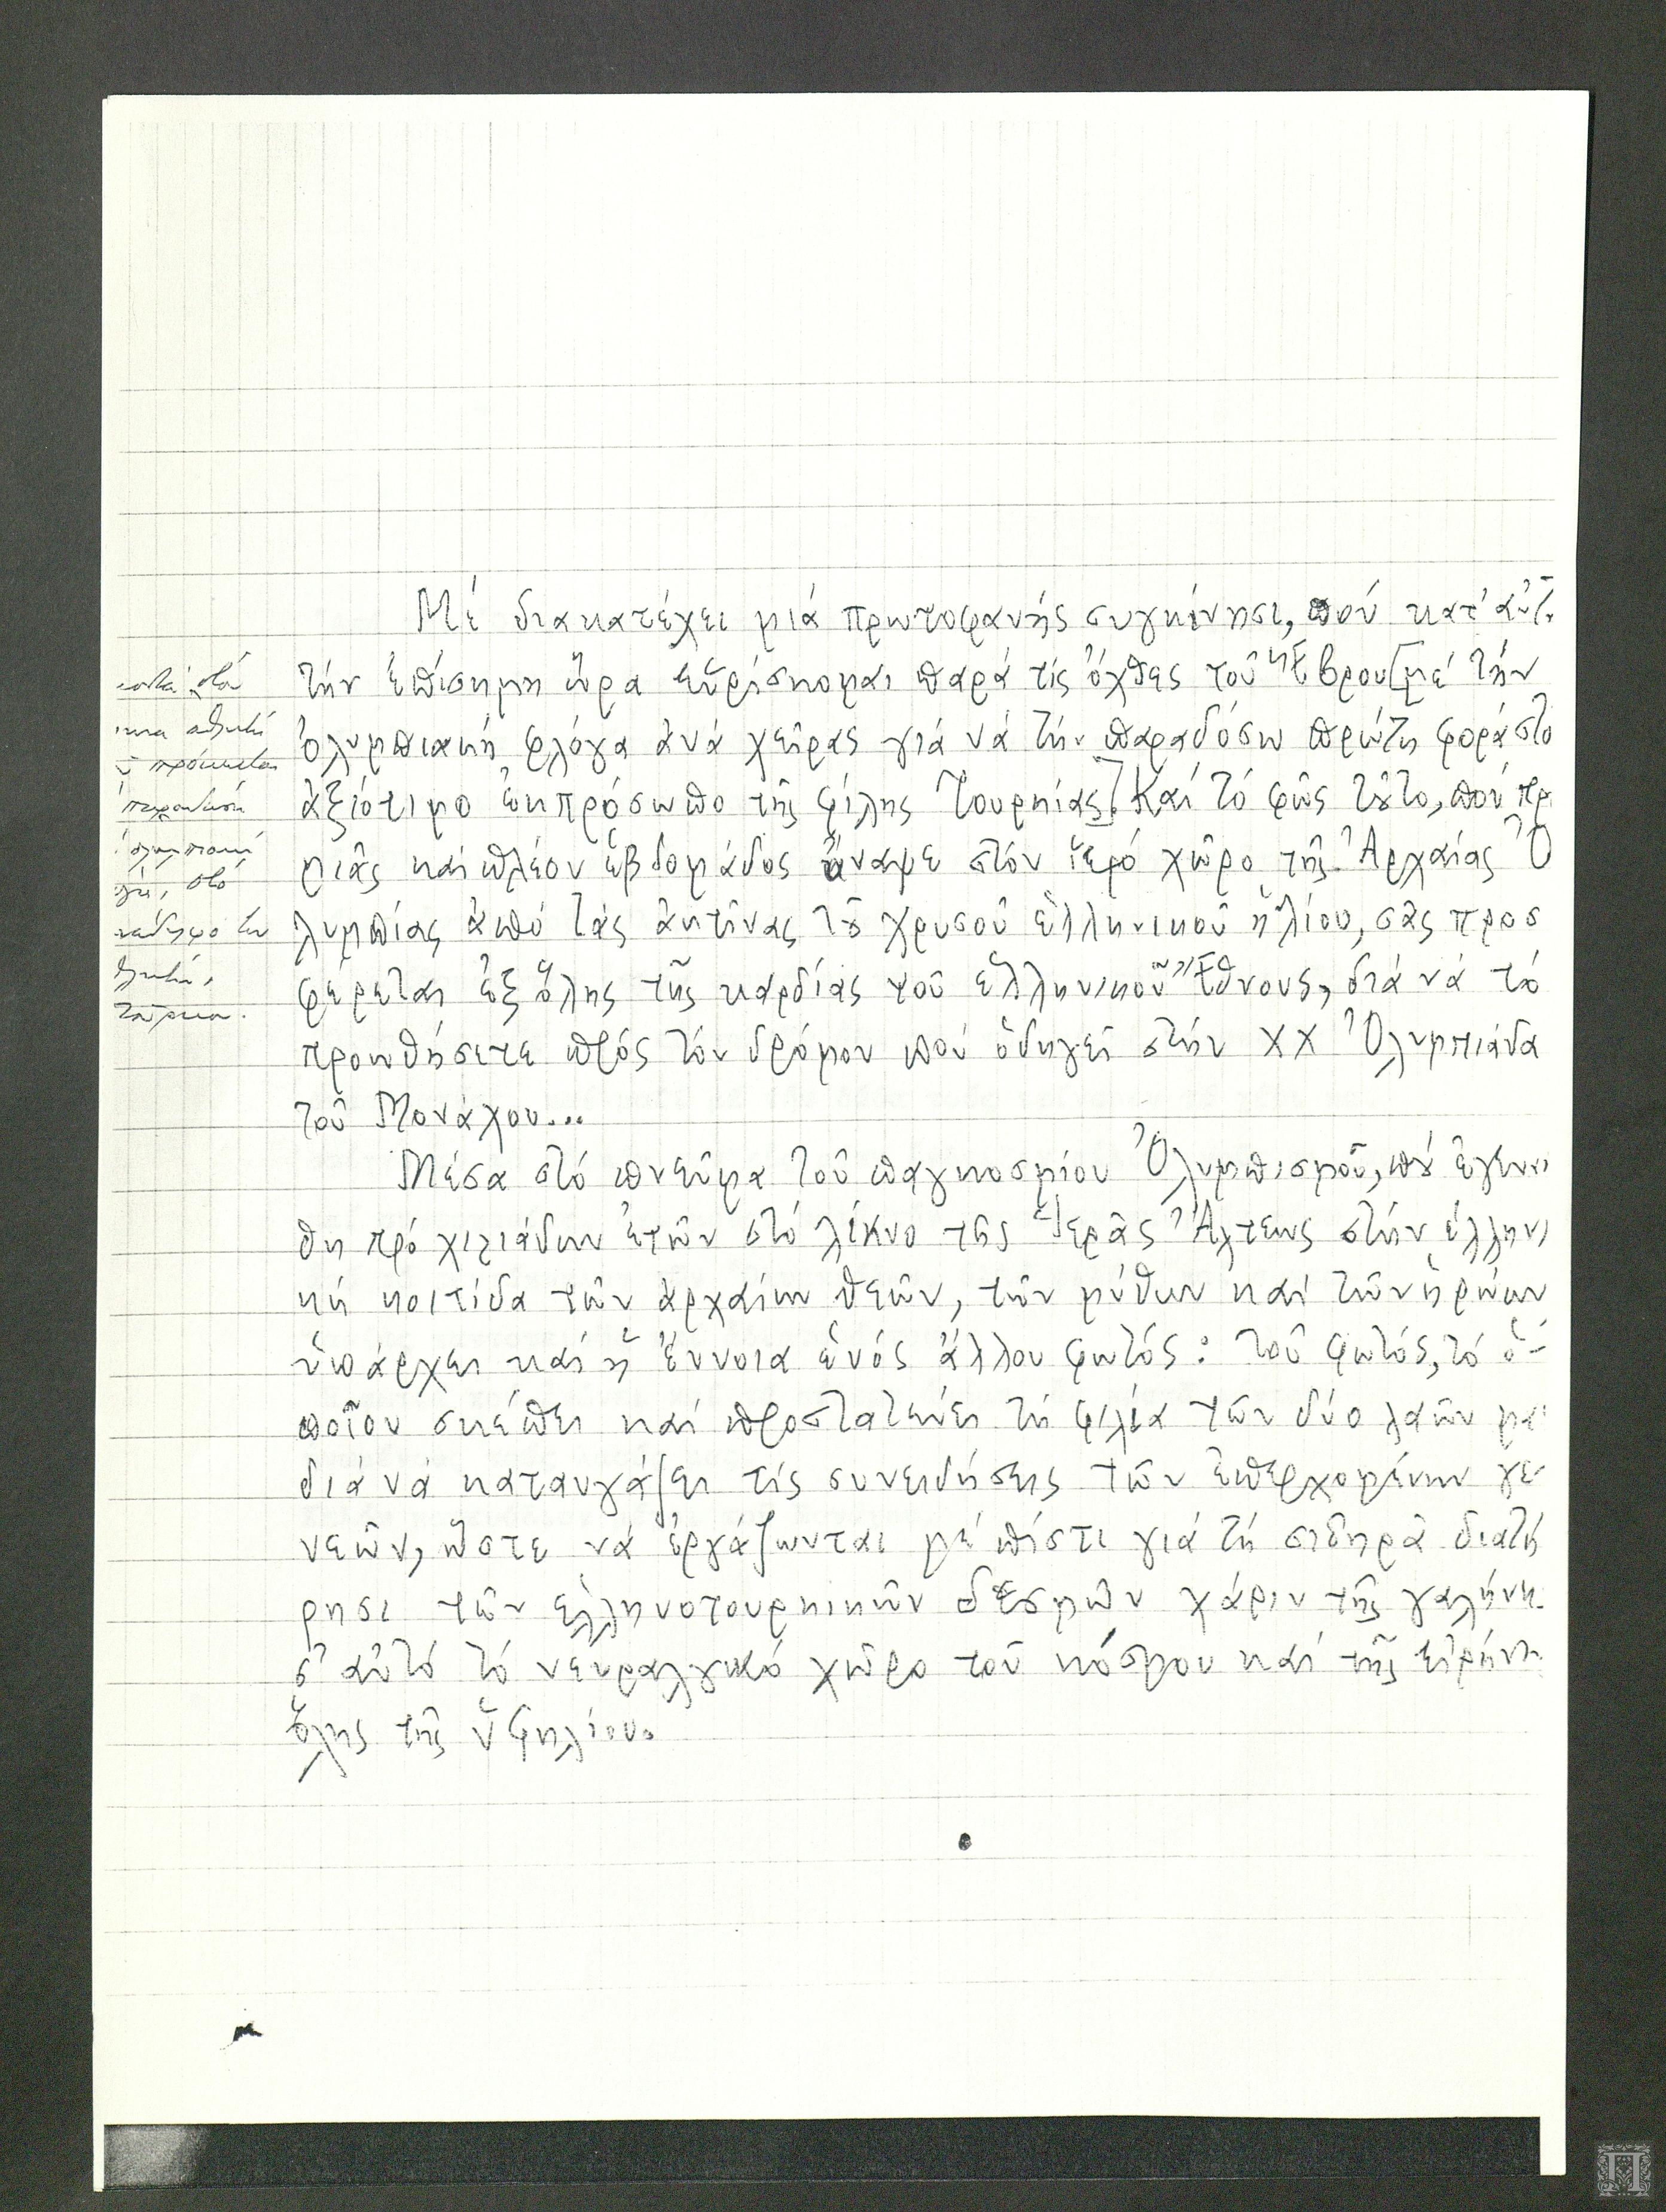 Μέ διακατέχει μιά πρωτοφανής συγκίνησι, πού κατ' αὐ
τήν ἐπίσημη ὥρα εὑρίσκομαι παρά τίς ὄχθες τοῦ Ἕβρου [μέ τήν
Ὀλυμπιακή φλόγα ἀνά χεῖρας γιά νά τήν παραδόσω πρώτη φορά στό
ἀξιότιμο ἐκπρόσωπο τῆς φίλης Τουρκίας]. Καί τό φῶς τοῦτο, πού πρ
μιᾶς καί πλέον ἑβδομάδος ἄναψε στόν ἱερό χῶρο τῆς Ἀρχαίας Ὀ
λυμπίας ἀπό τάς ἀκτῖνας τοῦ χρυσοῦ ἑλληνικοῦ ἡλίου, σᾶς προσ
φέρεται ἐξ ὅλης τῆς καρδίας τοῦ ἑλληνικοῦ Ἔθνους, διά νά τό
προωθήσετε πρός τόν δρόμον πού ὁδηγεῖ στήν ΧΧ Ὀλυμπιάδα
τοῦ Μονάχου...
Μέσα στό πνεῦμα τοῦ παγκοσμίου Ὀλυμπισμοῦ, πού ἐγεννή
θη πρό χιλιάδων ἐτῶν στό λίκνο τῆς Ἱερᾶς Ἄλτεως στήν ἑλληνι
κή κοιτίδα τῶν ἀρχαίων θεῶν, τῶν μύθων καί τῶν ἡρώων
ὑπάρχει καί ἡ ἔννοια ἑνός ἄλλου φωτός: τοῦ φωτός, τό ὁ-
ποῖον σκέπει καί προστατεύει τή φιλία τῶν δύο λαῶν μα
διά νά καταυγάζει τίς συνειδήσεις τῶν ἐπερχομένων γε
νεῶν, ὥστε νά ἐργάζωνται μέ πίστι γιά τή σιδηρᾶ διατή
ρησι τῶν ἑλληνοτουρκικῶν δεσμῶν χάριν τῆς γαλήνη
σ' αὐτό τό νευραλγικό χῶρο τοῦ κόσμου καί τῆς εἰρήνη
ὅλης τῆς ὑφηλίου.
στό
πρόκειται
στό